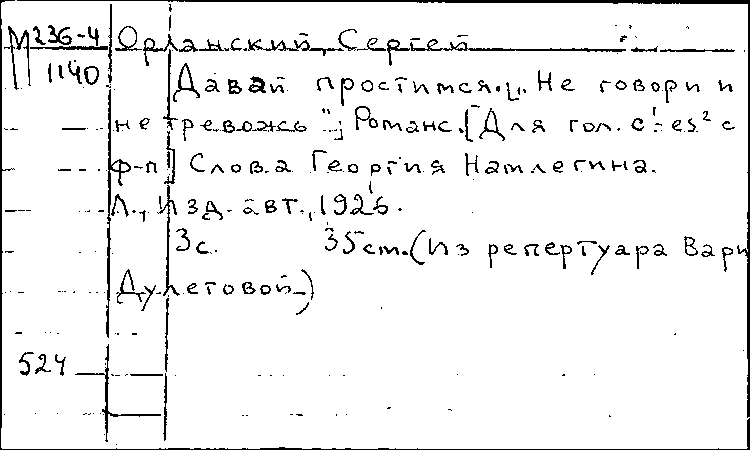 М 236-4 Орланский, Сергей
1140 Давай простимся. „Не говори и
не тревожь"; Романс. [Для гол. c¹-es² с
ф-п] Слова Георгия Намлегина.
Л., Изд. авт., 1926.
3с. 35см. (Из репертуара Вари
Дулетовой)
524